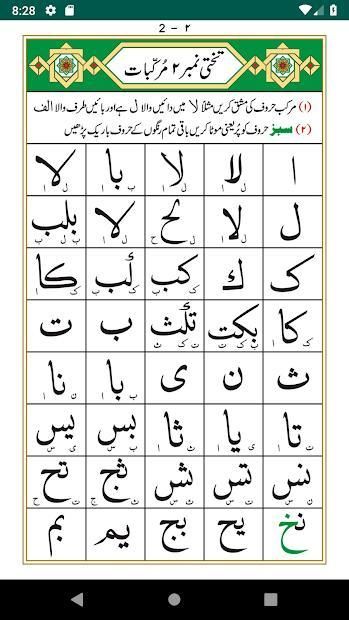 8:28
2 - ۲
تختی نمبر ۲ مُرکّبات
(۱) مرکب حروف کی مشق کریں مثلاً لا میں دائیں والا ل ہے اور بائیں طرف والا الف
(۲) سبز حروف کو پُر یعنی موٹا کریں باقی تمام رنگوں کے حروف باریک پڑھیں
ا لا لا با لا
ل لا لح لا بلب
ک ك کب لب کا
کا بکت تلث ب ت
ث ن ی با نا
تا یا ثا بس یس
نس تس ثس ثج تح
نخ یح بج یم بم